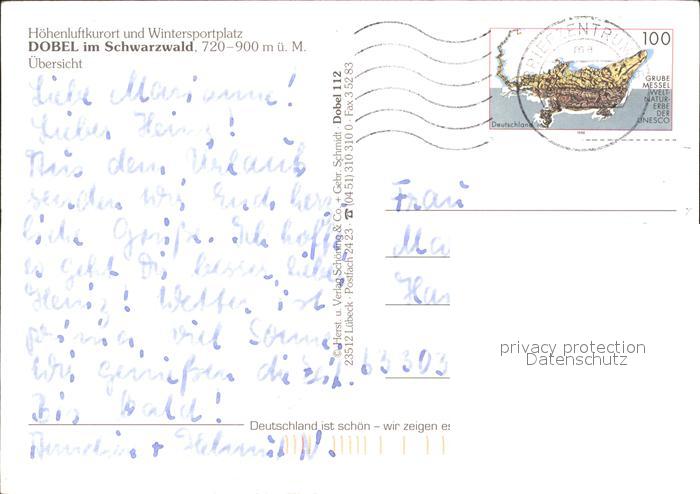 Höhenluftkurort und Wintersportplatz
DOBEL im Schwarzwald, 720–900 m ü. M.
Übersicht
Liebe Marianne!
Lieber Heinz!
Aus dem Urlaub
senden wir Euch herz
liche Grüße. Ich hoffe
es geht Dir besser, lieber
Heinz! Wetter ist
prima, viel Sonne
Wir genießen die Zeit.
Bis bald!
+ Helmut
© Herst. u. Verlag Schöning & Co. + Gebr. Schmidt · Dobel 112
23512 Lübeck · Postfach 24 23 · ☎ (04 51) 310 310 0 · Fax 3 52 83
Deutschland ist schön – wir zeigen es
BRIEFZENTRUM
100
GRUBE
MESSEL
WELT-
NATUR-
ERBE
DER
UNESCO
Deutschland
1998
Frau
Ma
Ha
63303
privacy protection
Datenschutz